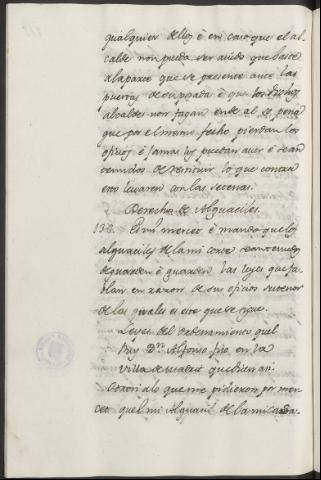 qualquier dellos é en caso que el al
calde non pueda ser avido que baste
a la parte que se presente ante las
puertas de su posada é que los dichos
alcaldes non fagan ende al so pena
que por el mismo fecho pierdan los
oficios é jamas los puedan aver é sean
tenudos de restituir lo que contra
esto levaren con las setenas.
Derechos de Alguaciles.
138. Es mi merced é mando que los
alguaciles de la mi corte sean tenudos
de guardar é guarden las leyes que fa
blan en razon de sus oficios su tenor
de las quales es este que se sigue.
Leyes del ordenamiento quel
Rey Dn Alfonso fizo en la
villa de que dicen asi.
Otorgo á lo que me pidieron por mer
ced quel mi Alguacil de la mi casa.